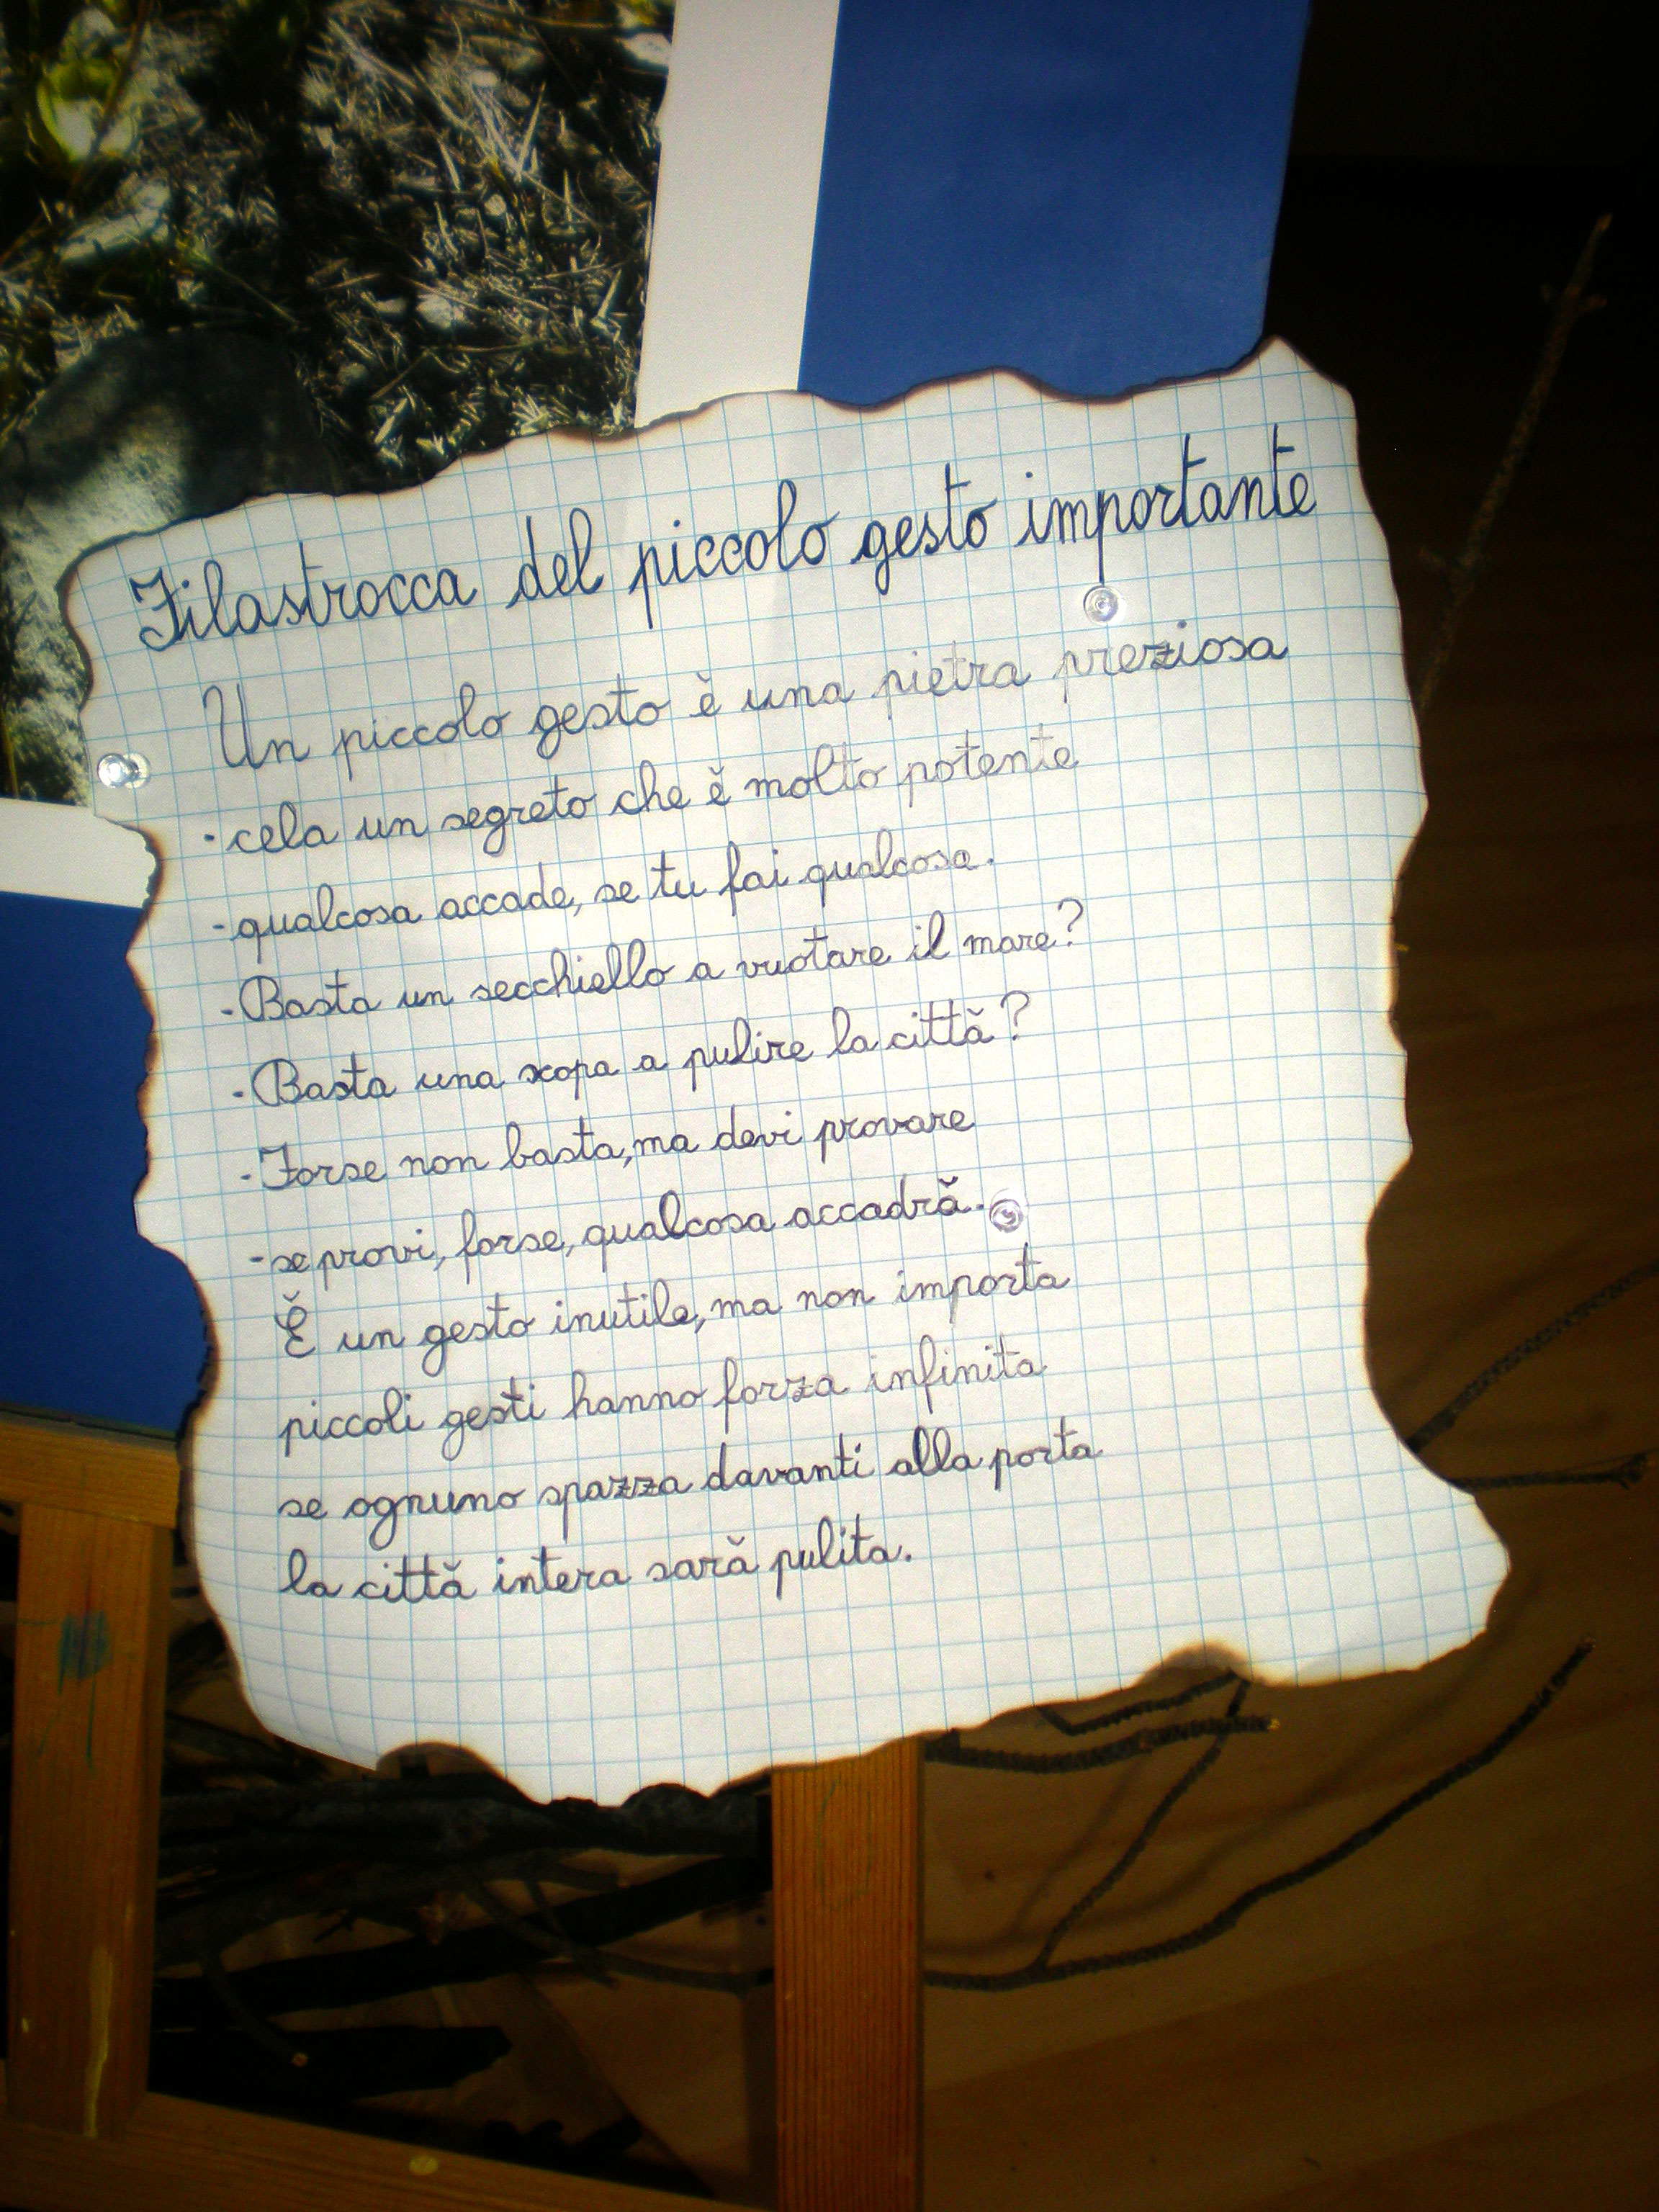 Filastrocca del piccolo gesto importante
Un piccolo gesto è una pietra preziosa
- cela un segreto che è molto potente
- qualcosa accade, se tu fai qualcosa.
- Basta un secchiello a vuotare il mare?
- Basta una scopa a pulire la città?
- Forse non basta, ma devi provare
- se provi, forse, qualcosa accadrà.
È un gesto inutile, ma non importa
piccoli gesti hanno forza infinita
se ognuno spazza davanti alla porta
la città intera sarà pulita.